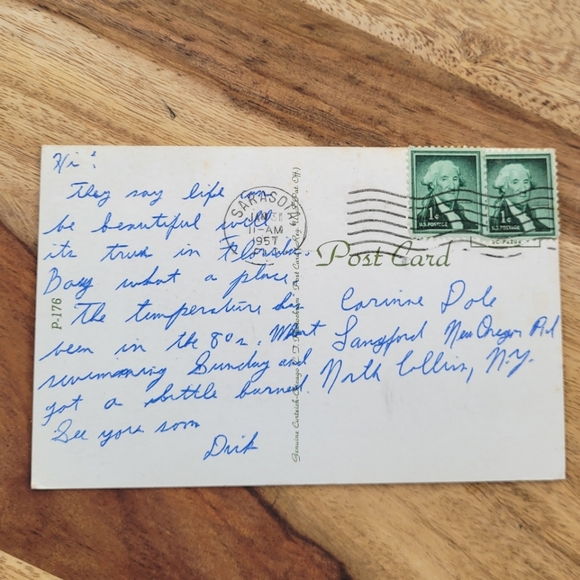 Hi!
They say life can
be beautiful well
its true in Florida.
Boy what a place
The temperature has
been in the 80s. Went
swimming Sunday and
got a little burned.
See you soon
Dick
P-176
SARASOTA
11-AM
1957
FLA.
1¢
U.S. POSTAGE
1¢
U.S. POSTAGE
Post Card
Corinne Dole
Langford New Oregon Rd
North Collins, N.Y.
Genuine Curteich-Chicago
Post Card